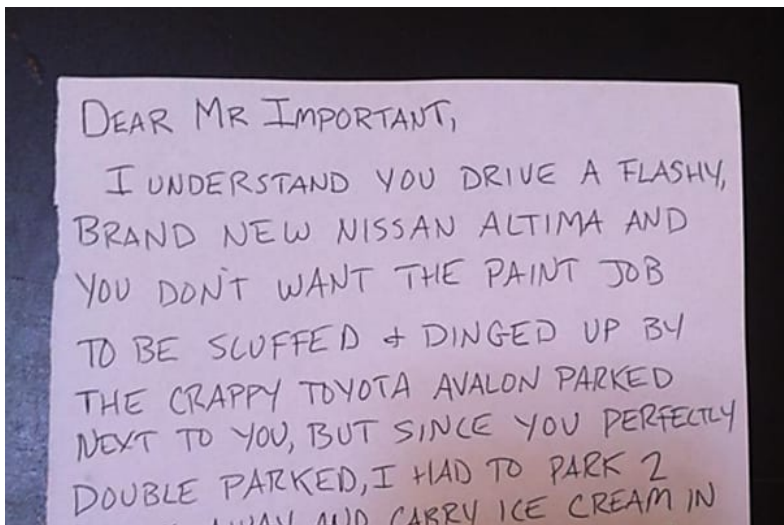 DEAR MR IMPORTANT,
I UNDERSTAND YOU DRIVE A FLASHY,
BRAND NEW NISSAN ALTIMA AND
YOU DON'T WANT THE PAINT JOB
TO BE SCUFFED & DINGED UP BY
THE CRAPPY TOYOTA AVALON PARKED
NEXT TO YOU, BUT SINCE YOU PERFECTLY
DOUBLE PARKED, I HAD TO PARK 2
AWAY AND CARRY ICE CREAM IN